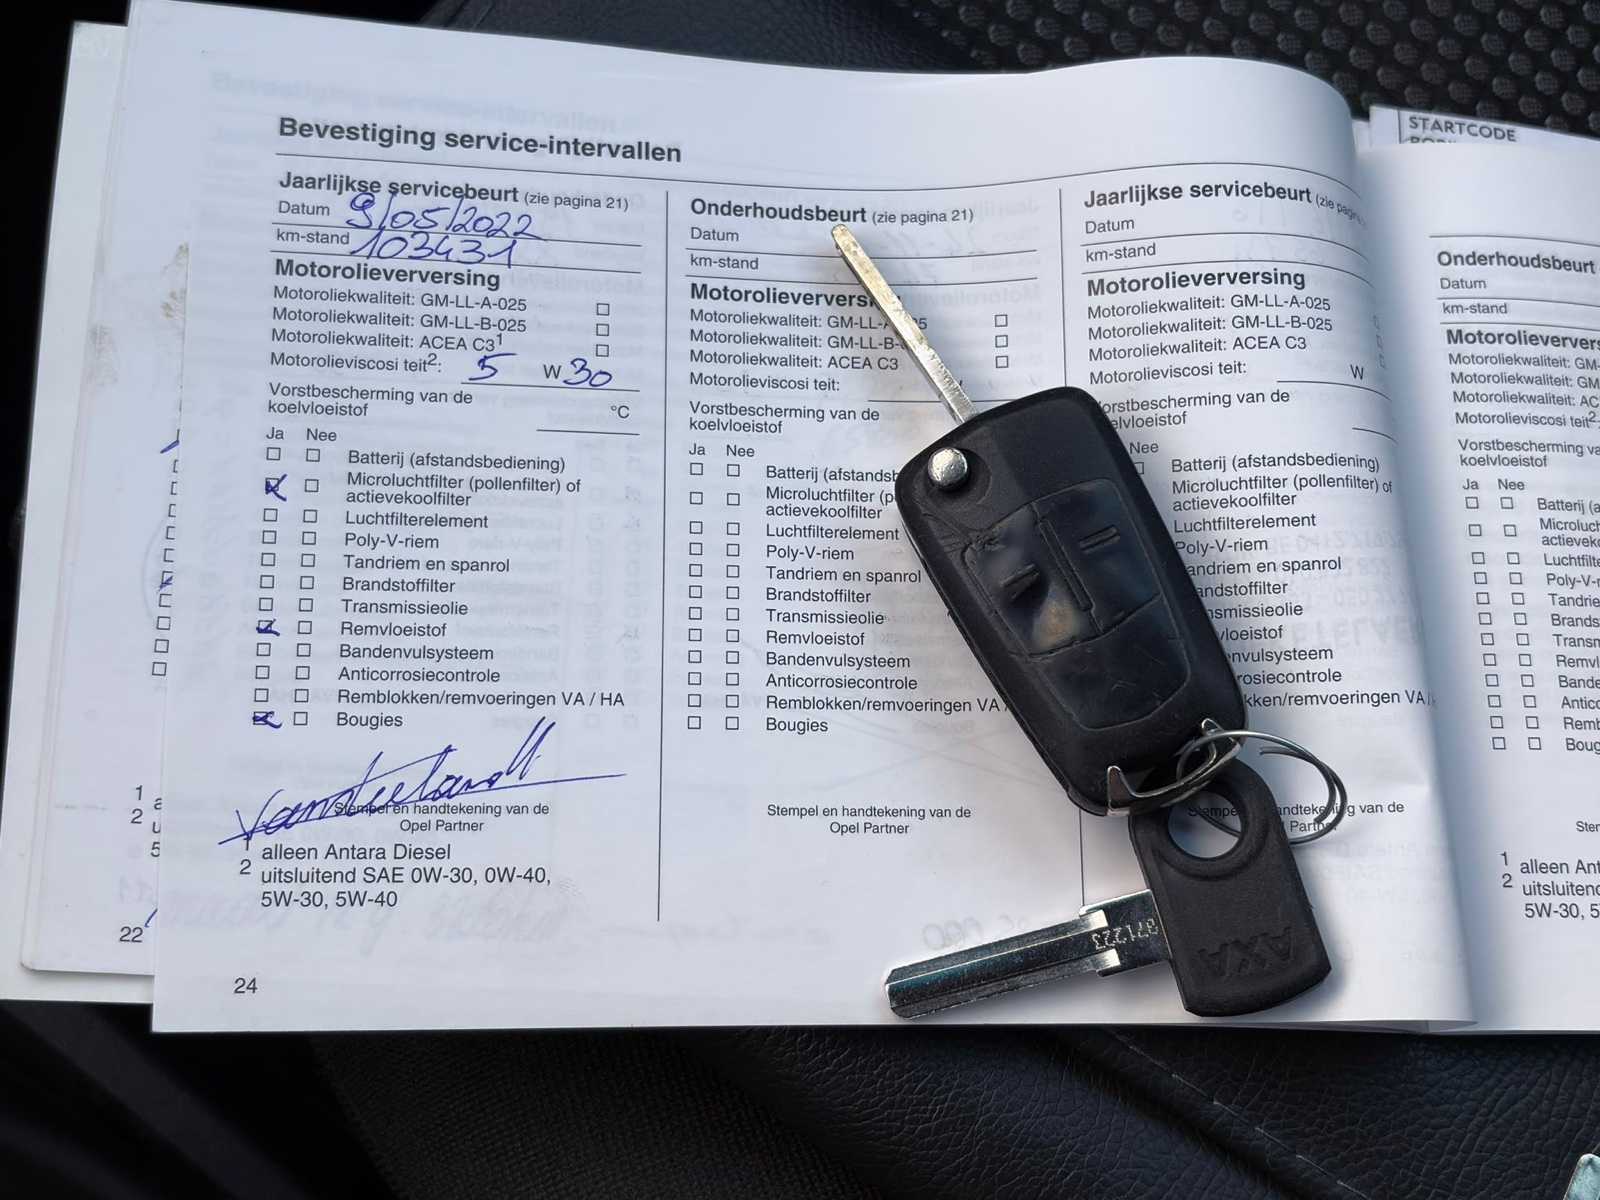 STARTCODE
Bevestiging service-intervallen
Jaarlijkse servicebeurt (zie pagina 21)
Datum 9/05/2022
km-stand 103431
Motorolieverversing
Motoroliekwaliteit: GM-LL-A-025
Motoroliekwaliteit: GM-LL-B-025
Motoroliekwaliteit: ACEA C3¹
Motorolieviscosi teit²: 5 W 30
Vorstbescherming van de
koelvloeistof °C
Ja Nee
Batterij (afstandsbediening)
Microluchtfilter (pollenfilter) of
actievekoolfilter
Luchtfilterelement
Poly-V-riem
Tandriem en spanrol
Brandstoffilter
Transmissieolie
Remvloeistof
Bandenvulsysteem
Anticorrosiecontrole
Remblokken/remvoeringen VA / HA
Bougies
Stempel en handtekening van de
Opel Partner
1 alleen Antara Diesel
2 uitsluitend SAE 0W-30, 0W-40,
5W-30, 5W-40
24
Onderhoudsbeurt (zie pagina 21)
Datum
km-stand
Motorolieversvers
Motoroliekwaliteit: GM-LL-A 25
Motoroliekwaliteit: GM-LL-B-
Motoroliekwaliteit: ACEA C3
Motorolieviscosi teit:
Vorstbescherming van de
koelvloeistof
Ja Nee
Batterij (afstandsb
Microluchtfilter (p
actievekoolfilter
Luchtfilterelement
Poly-V-riem
Tandriem en spanrol
Brandstoffilter
Transmissieolie
Remvloeistof
Bandenvulsysteem
Anticorrosiecontrole
Remblokken/remvoeringen VA
Bougies
Stempel en handtekening van de
Opel Partner
Jaarlijkse servicebeurt (zie pag
Datum
km-stand
Motorolieverversing
Motoroliekwaliteit: GM-LL-A-025
Motoroliekwaliteit: GM-LL-B-025
Motoroliekwaliteit: ACEA C3
Motorolieviscosi teit: W
orstbescherming van de
elvloeistof
Nee
Batterij (afstandsbediening)
Microluchtfilter (pollenfilter) of
actievekoolfilter
Luchtfilterelement
Poly-V-riem
andriem en spanrol
andstoffilter
nsmissieolie
vloeistof
nvulsysteem
rosiecontrole
kken/remvoeringen VA/
Stempe andtekening van de
Partner
AXA
371223
Onderhoudsbeurt
Datum
km-stand
Motorolievers
Motoroliekwaliteit: GM-
Motoroliekwaliteit: GM
Motoroliekwaliteit: AC
Motorolieviscosi teit²
Vorstbescherming va
koelvloeistof
Ja Nee
Batterij (a
Microluc
actievek
Luchtfilt
Poly-V-r
Tandrie
Brands
Transm
Remvl
Bande
Antico
Remb
Boug
Ster
1 alleen Ant
2 uitsluitend
5W-30, 5
1 a
2 u
5
22